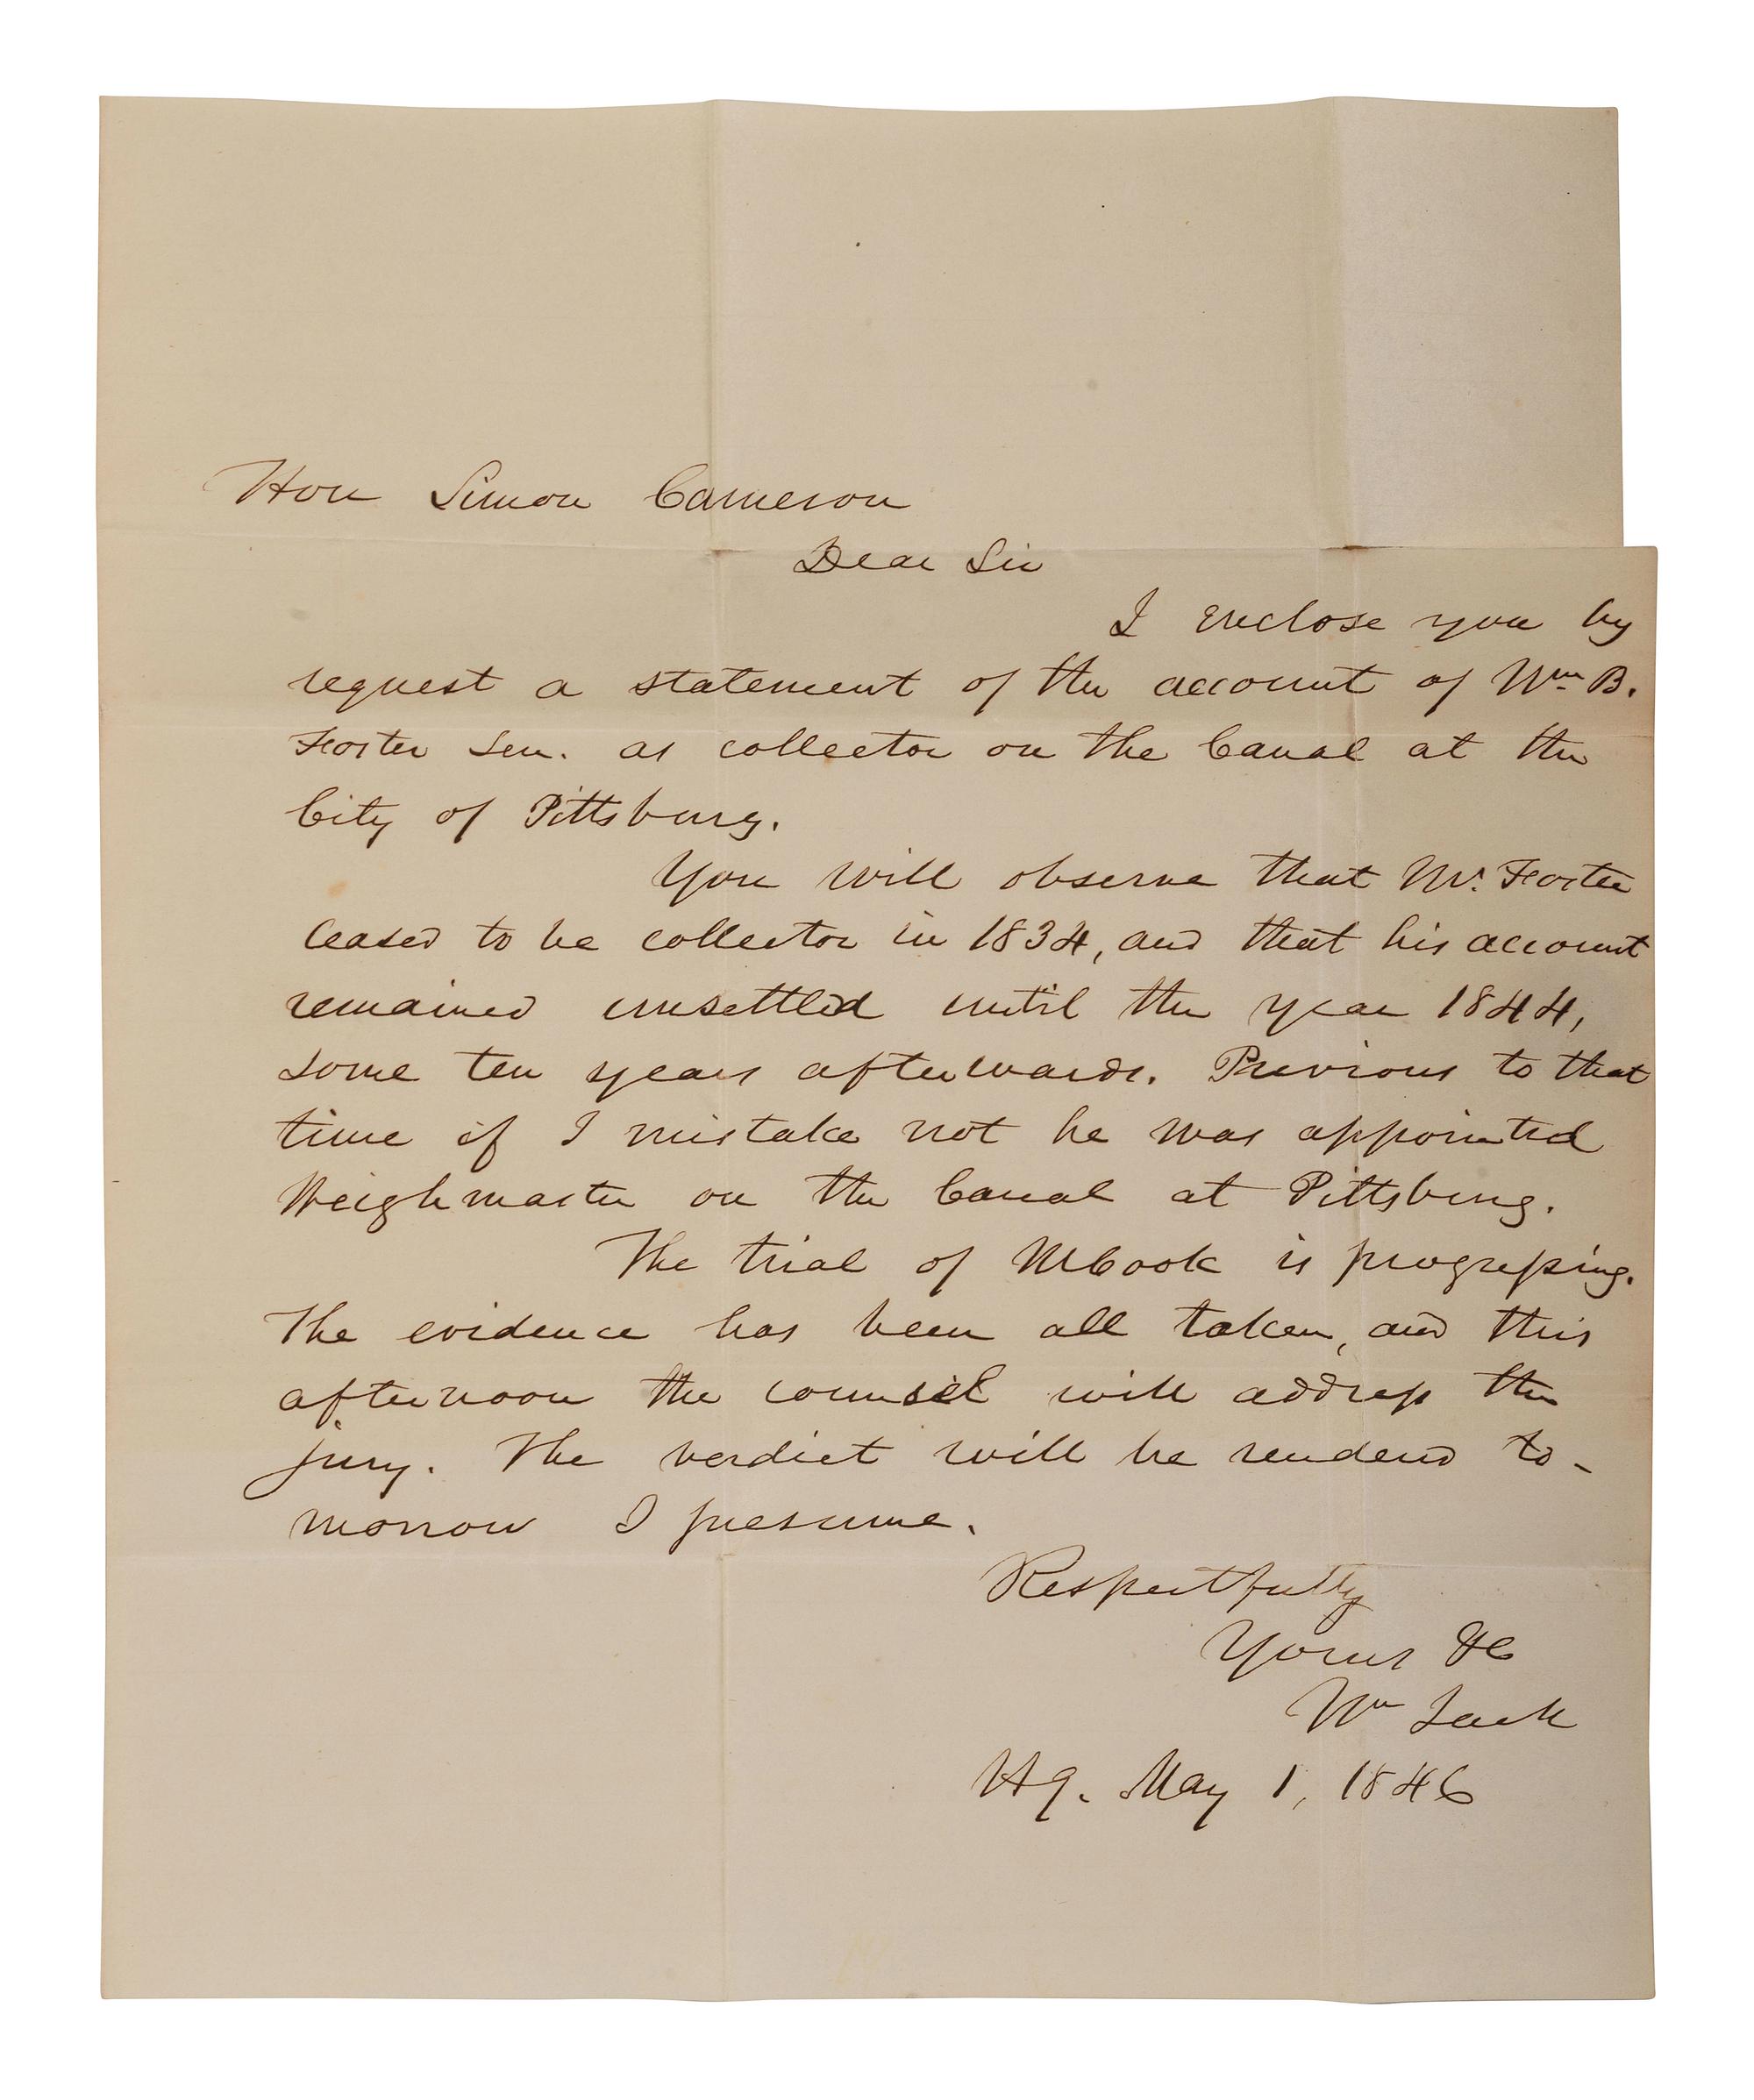 Hon Simon Cameron
Dear Sir
I enclose you by
request a statement of the account of Wm B.
Foster Sen. as collector on the Canal at the
City of Pittsburg.
You will observe that Mr. Foster
ceased to be collector in 1834, and that his account
remained unsettled until the year 1844,
some ten years afterwards. Previous to that
time if I mistake not he was appointed
Weighmaster on the Canal at Pittsburg.
The trial of McCook is progressing.
The evidence has been all taken, and this
afternoon the counsel will address the
jury. The verdict will be rendered to-
morrow I presume.
Respectfully
Yours &c
Wm Jack
Hg. May 1, 1846